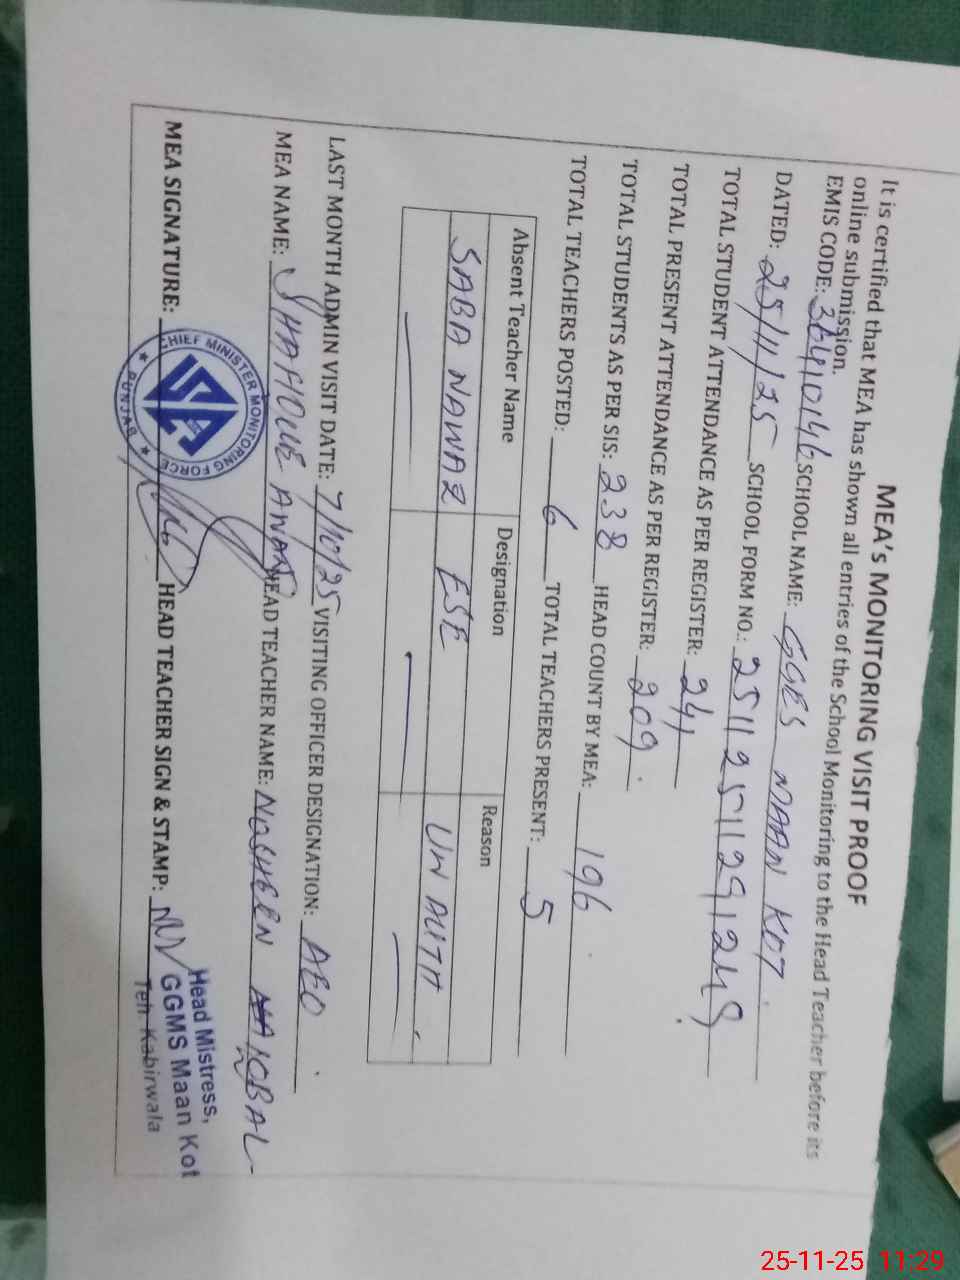 MEA's MONITORING VISIT PROOF
It is certified that MEA has shown all entries of the School Monitoring to the Head Teacher before its
online submission.
EMIS CODE: 36410146 SCHOOL NAME: GGES MAAN KOT
DATED: 25/11/25 SCHOOL FORM NO.: 
TOTAL STUDENT ATTENDANCE AS PER REGISTER: 241
TOTAL PRESENT ATTENDANCE AS PER REGISTER: 209
TOTAL STUDENTS AS PER SIS: 238 HEAD COUNT BY MEA: 196
TOTAL TEACHERS POSTED: 6 TOTAL TEACHERS PRESENT: 5
Absent Teacher Name Designation Reason
SABA NAWAZ ESE UN AUTH
LAST MONTH ADMIN VISIT DATE: 7/10/25 VISITING OFFICER DESIGNATION: AEO
MEA NAME: HEAD TEACHER NAME: NOSHEEN IQBAL
MEA SIGNATURE: HEAD TEACHER SIGN & STAMP:
CHIEF MINISTER MONITORING FORCE
PUNJAB
Head Mistress,
GGMS Maan Kot
Teh Kabirwala
25-11-25 11:29